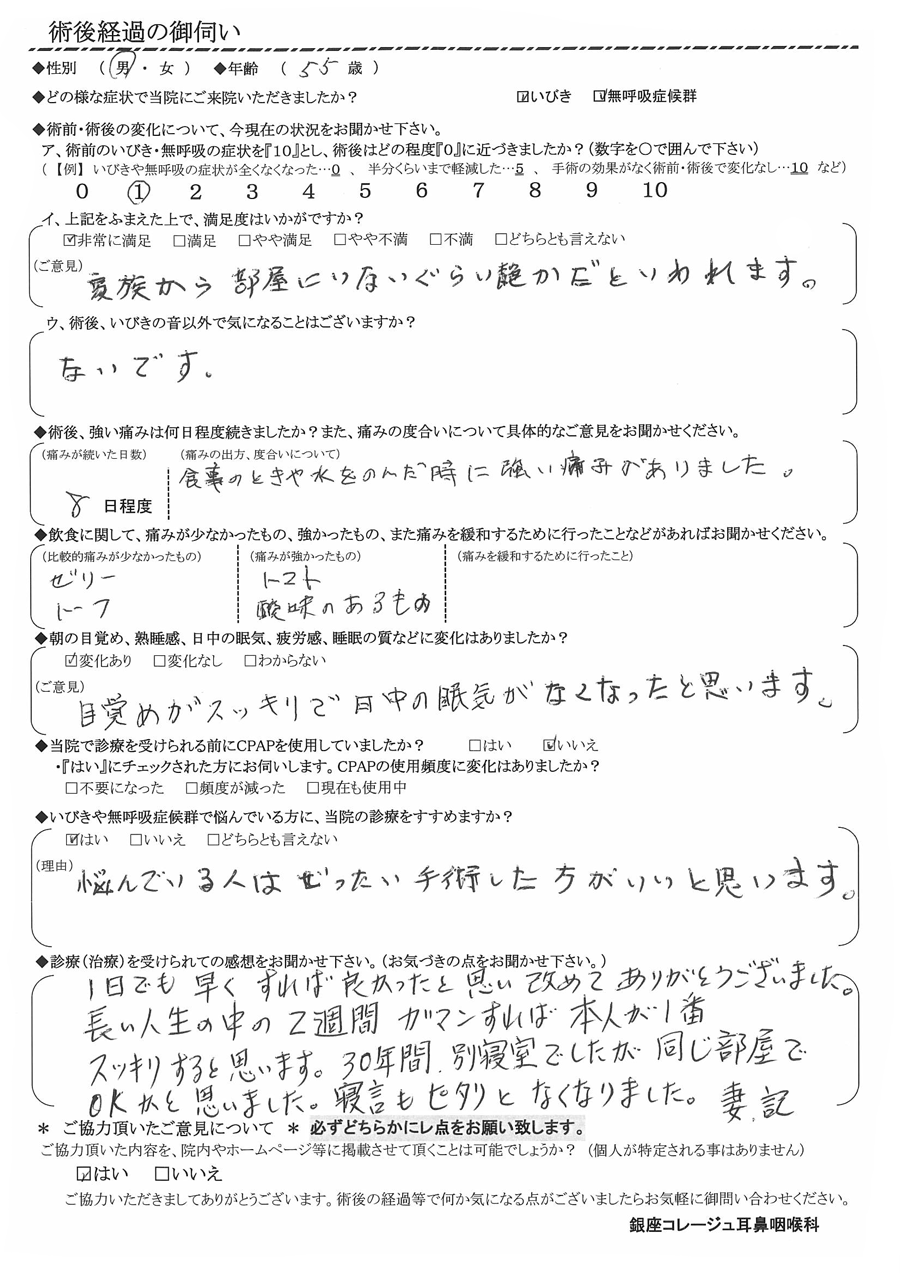 術後経過の御伺い
◆性別 （ 男 ・ 女 ） ◆年齢 （ 55 歳 ）
◆どの様な症状で当院にご来院いただきましたか？ ☑いびき ☑無呼吸症候群
◆術前・術後の変化について、今現在の状況をお聞かせ下さい。
ア、術前のいびき・無呼吸の症状を『１０』とし、術後はどの程度『０』に近づきましたか？（数字を○で囲んで下さい）
（ 【例】 いびきや無呼吸の症状が全くなくなった…0 、 半分くらいまで軽減した…5 、 手術の効果がなく術前・術後で変化なし…10 など）
0 ① 2 3 4 5 6 7 8 9 10
イ、上記をふまえた上で、満足度はいかがですか？
☑非常に満足 □満足 □やや満足 □やや不満 □不満 □どちらとも言えない
（ご意見）
家族から部屋にいないぐらい静かだといわれます。
ウ、術後、いびきの音以外で気になることはございますか？
ないです。
◆術後、強い痛みは何日程度続きましたか？また、痛みの度合いについて具体的なご意見をお聞かせください。
（痛みが続いた日数） （痛みの出方、度合いについて）
食事のときや水をのんだ時に強い痛みがありました。
8 日程度
◆飲食に関して、痛みが少なかったもの、強かったもの、また痛みを緩和するために行ったことなどがあればお聞かせください。
（比較的痛みが少なかったもの） （痛みが強かったもの） （痛みを緩和するために行ったこと）
ゼリー トマト
トーフ 酸味のあるもの
◆朝の目覚め、熟睡感、日中の眠気、疲労感、睡眠の質などに変化はありましたか？
☑変化あり □変化なし □わからない
（ご意見）
目覚めがスッキリで日中の眠気がなくなったと思います。
◆当院で診療を受けられる前にCPAPを使用していましたか？ □はい ☑いいえ
・『はい』にチェックされた方にお伺いします。CPAPの使用頻度に変化はありましたか？
□不要になった □頻度が減った □現在も使用中
◆いびきや無呼吸症候群で悩んでいる方に、当院の診療をすすめますか？
☑はい □いいえ □どちらとも言えない
（理由）
悩んでいる人はぜったい手術した方がいいと思います。
◆診療（治療）を受けられての感想をお聞かせ下さい。（お気づきの点をお聞かせ下さい。）
1日でも早くすれば良かったと思い改めてありがとうございました。
長い人生の中の2週間ガマンすれば本人が1番
スッキリすると思います。30年間、別寝室でしたが同じ部屋で
OKかと思いました。寝言もピタリとなくなりました。 妻、記
＊ ご協力頂いたご意見について ＊ 必ずどちらかにレ点をお願い致します。
ご協力頂いた内容を、院内やホームページ等に掲載させて頂くことは可能でしょうか？ （個人が特定される事はありません）
☑はい □いいえ
ご協力いただきましてありがとうございます。術後の経過等で何か気になる点がございましたらお気軽に御問い合わせください。
銀座コレージュ耳鼻咽喉科